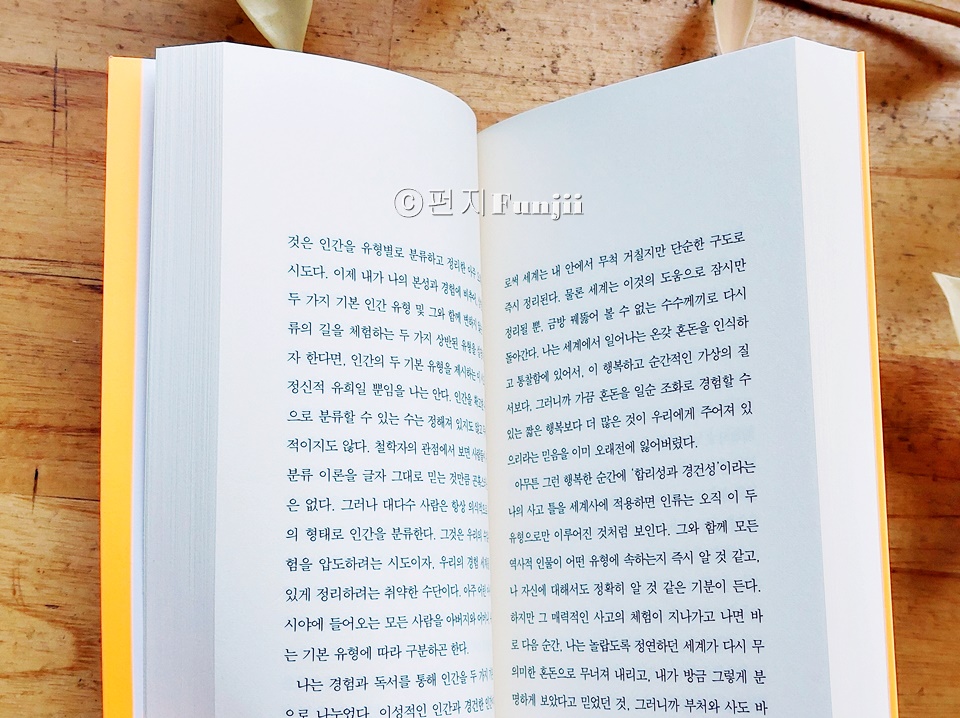 ⓒ펀지Funjii
것은 인간을 유형별로 분류하고 정리한
시도다. 이제 내가 나의 본성과 경험에
두 가지 기본 인간 유형 및 그와 함께
류의 길을 체험하는 두 가지 상반된 유형을
자 한다면, 인간의 두 기본 유형을 제시하는
정신적 유희일 뿐임을 나는 안다. 인간을
으로 분류할 수 있는 수는 정해져 있지도 않고
적이지도 않다. 철학자의 관점에서 보면
분류 이론을 글자 그대로 믿는 것만큼
은 없다. 그러나 대다수 사람은 항상
의 형태로 인간을 분류한다. 그것은 우리의
험을 압도하려는 시도이자, 우리의 경험
있게 정리하려는 취약한 수단이다. 아주
시야에 들어오는 모든 사람을 아버지와
는 기본 유형에 따라 구분하곤 한다.
나는 경험과 독서를 통해 인간을 두
으로 나누었다. 이성적인 인간과 경건한
로써 세계는 내 안에서 무척 거칠지만 단순한 구도로
즉시 정리된다. 물론 세계는 이것의 도움으로 잠시만
정리될 뿐, 금방 꿰뚫어 볼 수 없는 수수께끼로 다시
돌아간다. 나는 세계에서 일어나는 온갖 혼돈을 인식하
고 통찰함에 있어서, 이 행복하고 순간적인 가상의 질
서보다, 그러니까 가끔 혼돈을 일순 조화로 경험할 수
있는 짧은 행복보다 더 많은 것이 우리에게 주어져 있
으리라는 믿음을 이미 오래전에 잃어버렸다.
아무튼 그런 행복한 순간에 '합리성과 경건성'이라는
나의 사고 틀을 세계사에 적용하면 인류는 오직 이 두
유형으로만 이루어진 것처럼 보인다. 그와 함께 모든
역사적 인물이 어떤 유형에 속하는지 즉시 알 것 같고,
나 자신에 대해서도 정확히 알 것 같은 기분이 든다.
하지만 그 매력적인 사고의 체험이 지나가고 나면 바
로 다음 순간, 나는 놀랍도록 정연하던 세계가 다시 무
의미한 혼돈으로 무너져 내리고, 내가 방금 그렇게 분
명하게 보았다고 믿었던 것, 그러니까 부처와 사도 바